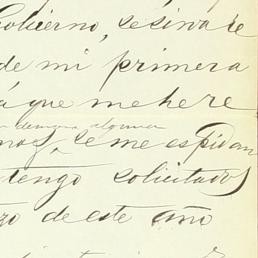 Gobierno, se sirva de
de mi primera
á que me here
demora alguna
mos, se me espidan
tengo solicitados
zo de este año